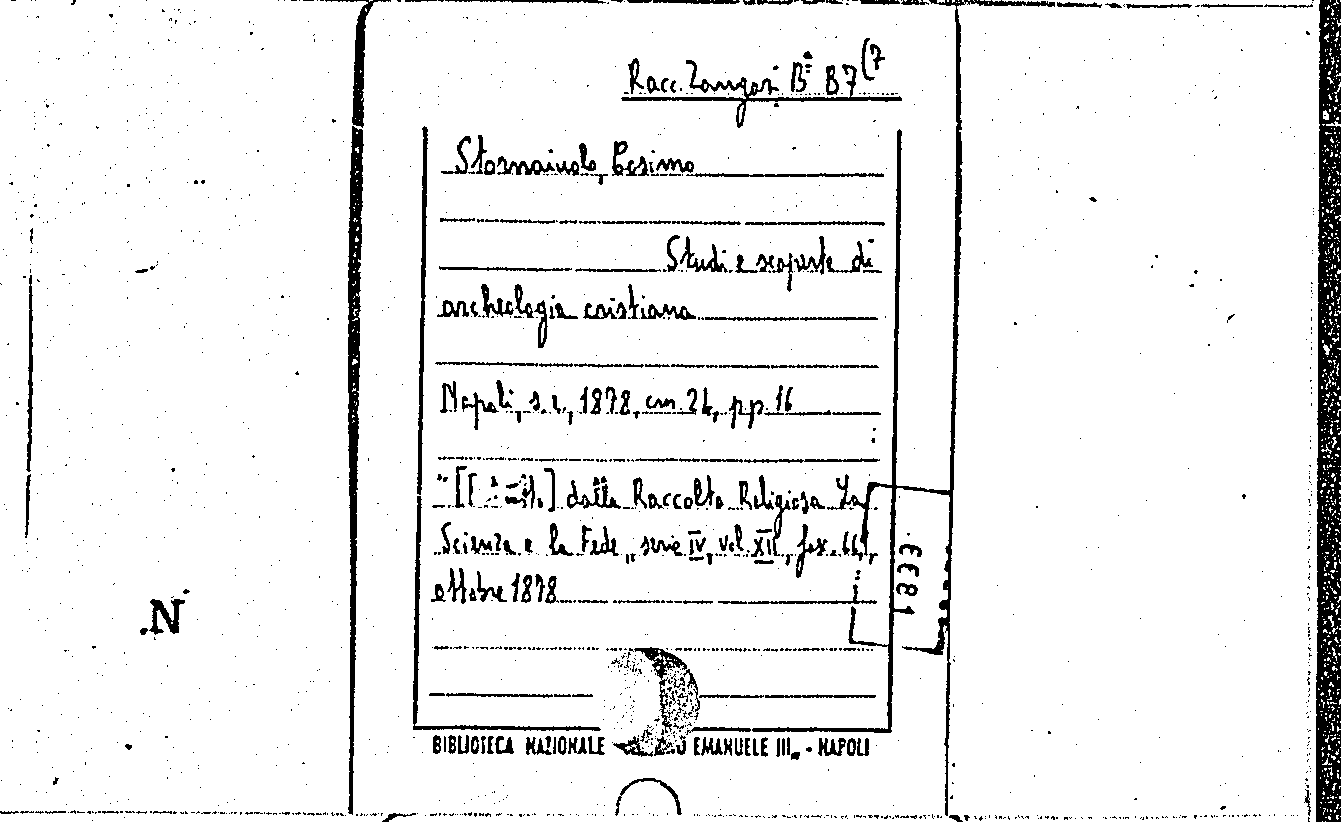 Racc. Zangari B= B7(7
Stornaiuolo, Cosimo
Studi e scoperte di
archeologia cristiana
Napoli, s.e., 1878, cm. 24, pp. 16
dalla Raccolta Religiosa La
Scienza e la Fede„ serie IV, vol. XII, fasc.
ottobre 1878
1833
.N
BIBLIOTECA NAZIONALE EMANUELE III„ - NAPOLI